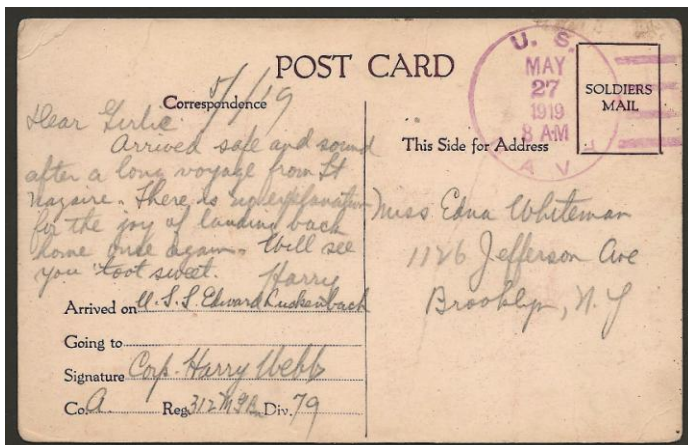 POST CARD
Correspondence
5/1/19
Dear Girlie
Arrived safe and sound
after a long voyage from St
Nazaire. There is no explanation
for the joy of landing back
home once again. Will see
you "toot sweet.
Harry
Arrived on U.S.S. Edward Luckenbach
Going to
Signature Corp. Harry Webb
Co. A. Reg. 312 M G Bn Div. 79
U. S.
MAY
27
1919
8 AM
NAVY
SOLDIERS
MAIL
This Side for Address
Miss Edna Whiteman
1126 Jefferson Ave
Brooklyn, N. Y